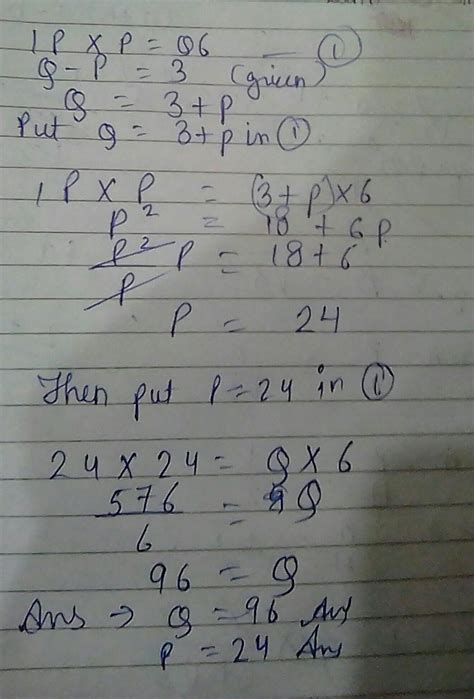 1P × P = Q6 — ①
Q - P = 3 (given)
Q = 3 + P
Put Q = 3 + P in ①
1P × P = (3 + P) × 6
P² = 18 + 6P
P²/P P = 18 + 6
P = 24
Then put P = 24 in ①
24 × 24 = Q × 6
576/6 = Q
96 = Q
Ans → Q = 96 Ans
P = 24 Ans